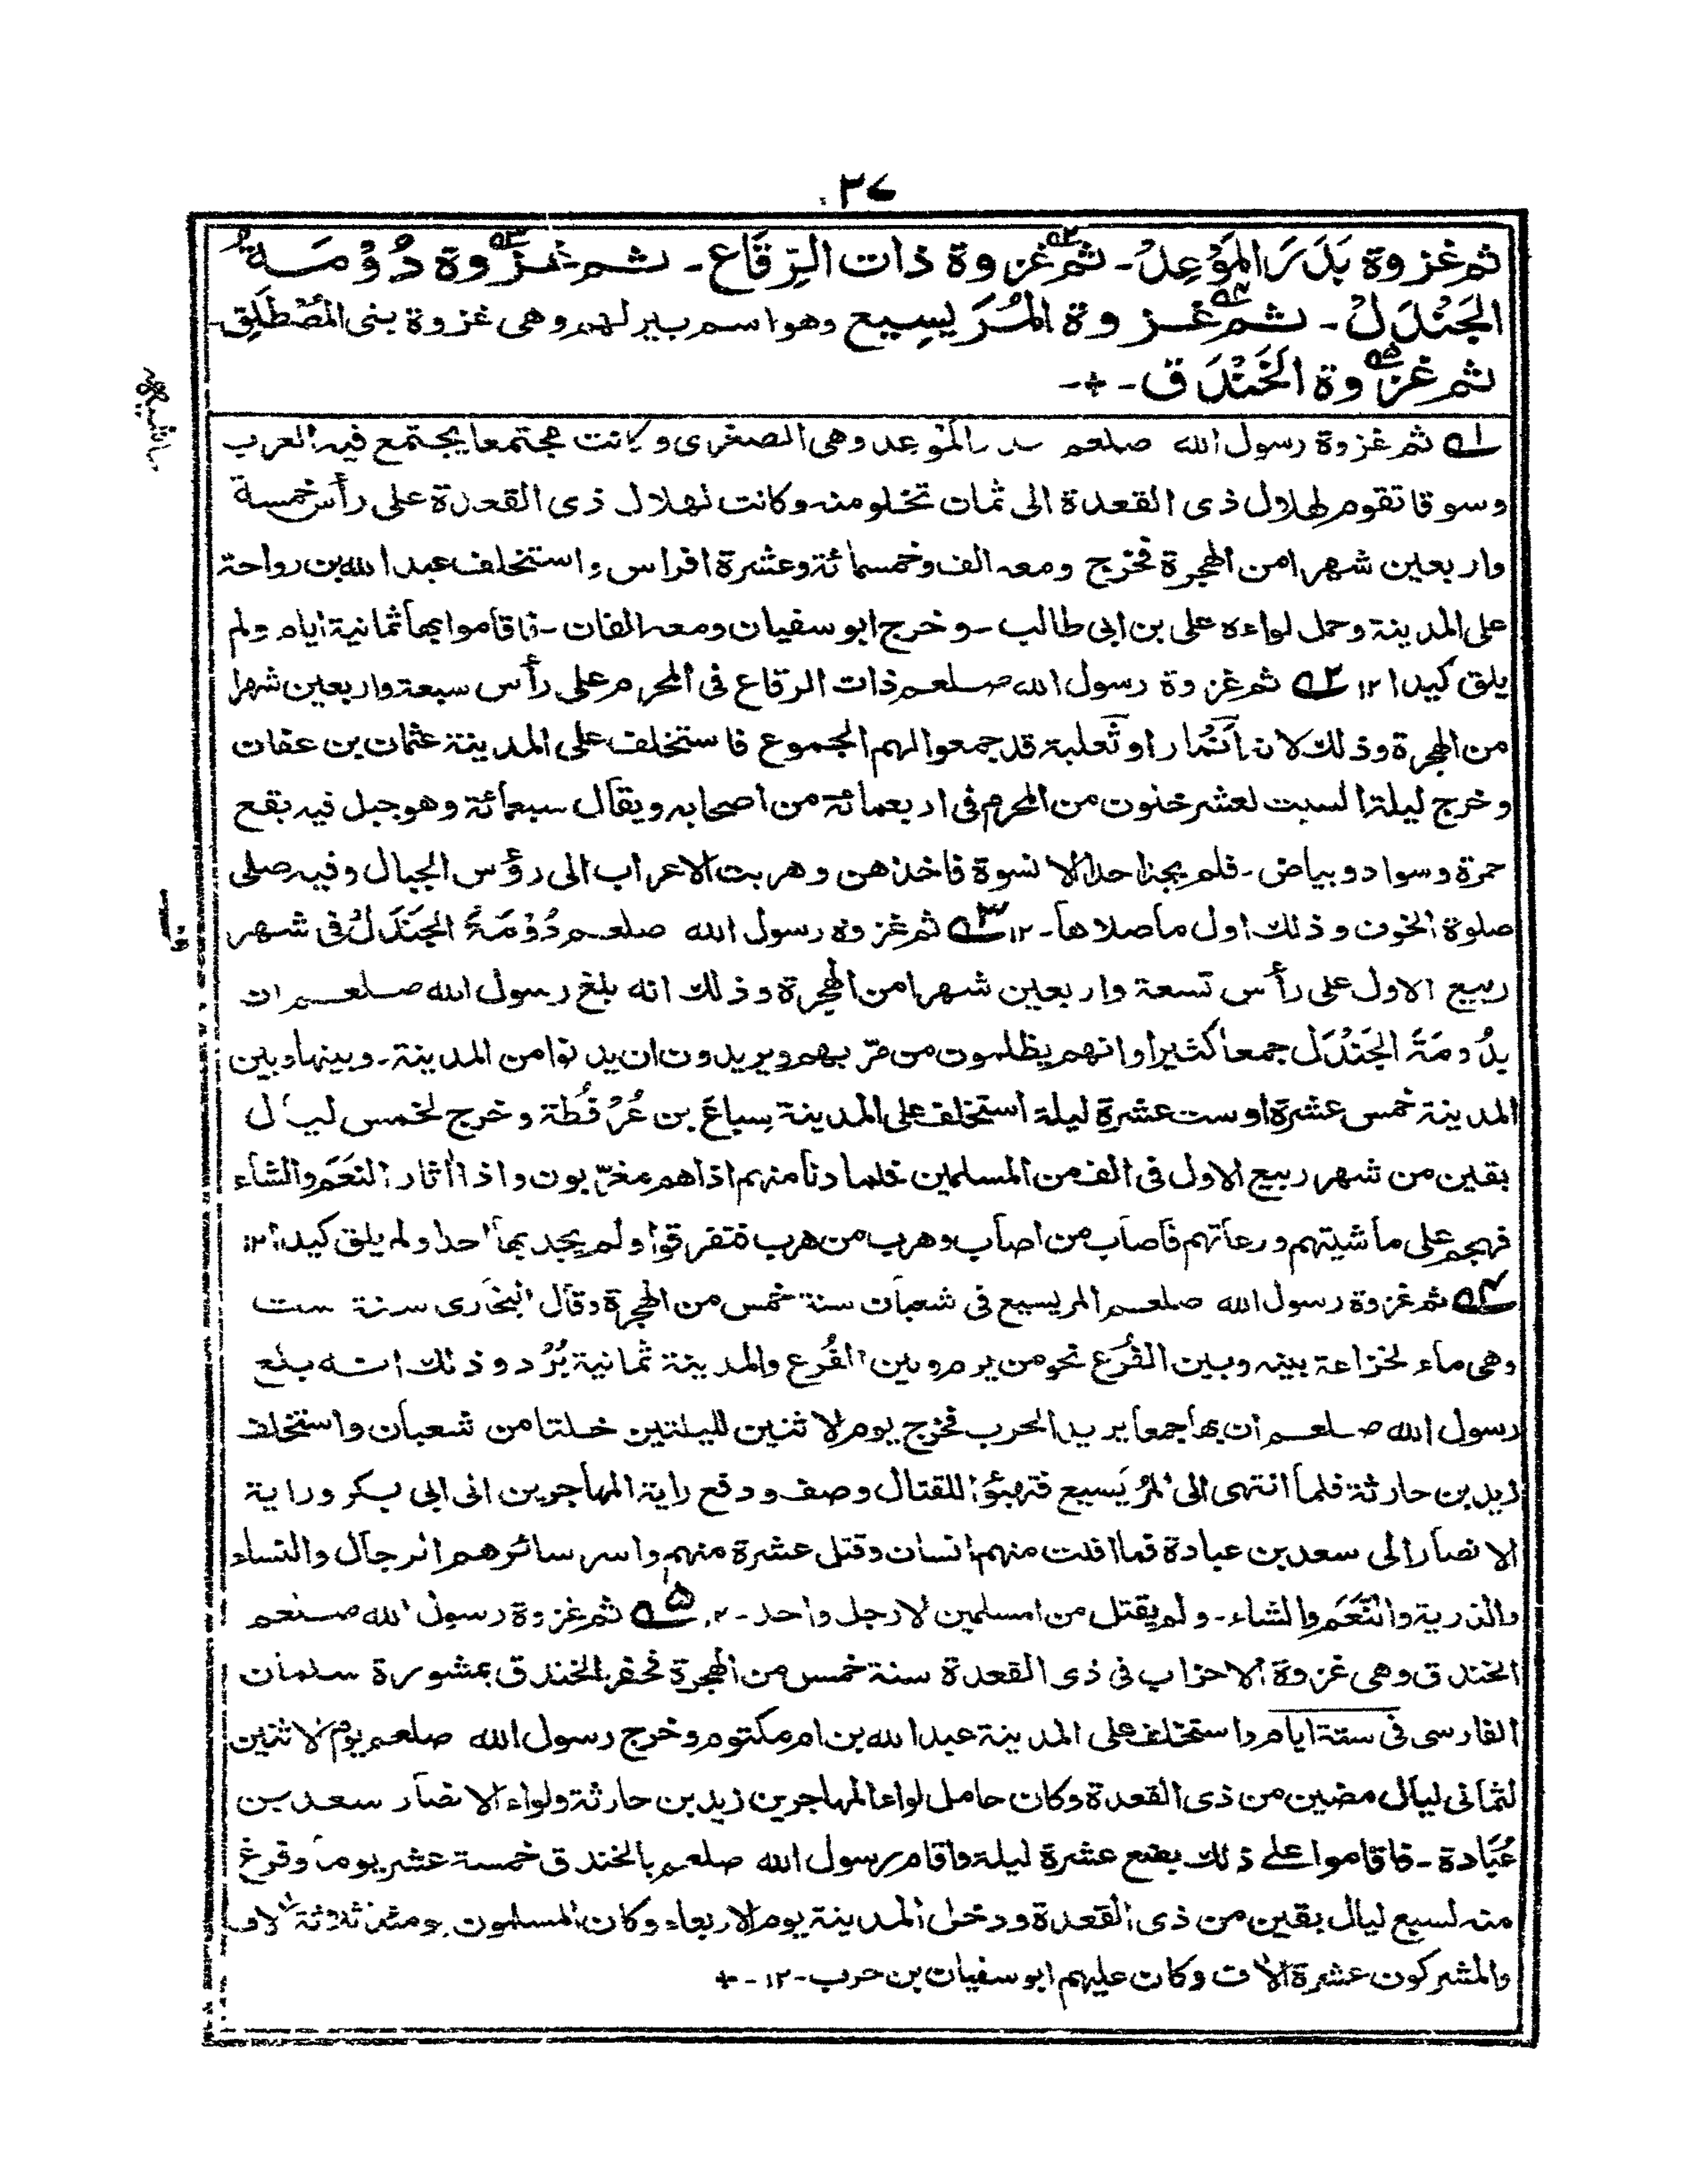 ٣٧
ثم غزوة بَدْرَ المَوْعِدْ۔ ثم غزوة ذات الرِّقَاع۔ ثم غزوة دُوْمَة
الجَنْدَلْ۔ ثم غزوة المُرَيسِيع وهو اسم بير لهم وهى غزوة بنى المُصْطَلِق۔
ثم غزوة الخَنْدَق۔ +۔
١ ثم غزوة رسول الله صلعم بدر المَوْعد وهى الصغرى وكانت مجتمعا يجتمع فيه العرب
وسوقا تقوم لهلال ذى القعدة الى ثمان تخلو منه وكانت لهلال ذى القعدة على رأس خمسة
واربعين شهرا من الهجرة فخرج ومعه الف وخمسمائة وعشرة افراس واستخلف عبد الله بن رواحة
على المدينة وحمل لواءه على بن ابى طالب۔ وخرج ابو سفيان ومعه الفان۔ فاقاموا بها ثمانية ايام ولم
يلق كيدا ١٢ ٢ ثم غزوة رسول الله صلعم ذات الرقاع فى المحرم على رأس سبعة واربعين شهرا
من الهجرة وذلك لان أنْمارا وثَعلبة قد جمعوا لهم الجموع فاستخلف على المدينة عثمان بن عفان
وخرج ليلة السبت لعشر خلون من المحرم فى اربعمائة من اصحابه ويقال سبعمائة وهو جبل فيه بقع
حمرة وسواد وبياض۔ فلم يجد احدا الا نسوة فاخذهن وهربت الاعراب الى رؤس الجبال وفيه صلى
صلوة الخوف وذلك اول ما صلاها۔ ١٢ ٣ ثم غزوة رسول الله صلعم دُوْمَةَ الجَنْدَلْ فى شهر
ربيع الاول على رأس تسعة واربعين شهرا من الهجرة وذلك انه بلغ رسول الله صلعم ان
بدُومَةَ الجَنْدَل جمعا كثيرا وانهم يظلمون من مرّ بهم ويريدون ان يدنوا من المدينة۔ وبينها وبين
المدينة خمس عشرة او ست عشرة ليلة استخلف على المدينة سباعَ بن عُرْفُطة وخرج لخمس ليال
بقين من شهر ربيع الاول فى الف من المسلمين فلما دنا منهم اذا هم مغرّبون واذا اٰثار النَعَم والشاء
فهجم على ماشيتهم ورعاتهم فاصاب من اصاب وهرب من هرب فتفرقوا ولم يجد بها احدا ولم يلق كيدا ١٢
٤ ثم غزوة رسول الله صلعم المريسيع فى شعبان سنة خمس من الهجرة وقال البخارى سنة ست
وهى ماء لخزاعة بينه وبين الفُرَع نحو من يوم وبين الفُرع والمدينة ثمانية بُرُد وذلك انه بلغ
رسول الله صلعم ان بها جمعا يريد الحرب فخرج يوم الاثنين لليلتين خلتا من شعبان واستخلف
زيد بن حارثة فلما انتهى الى المُرَيسيع فتهيؤا للقتال وصف ودفع راية المهاجرين الى ابى بكر وراية
الانصار الى سعد بن عبادة فما افلت منهم انسان وقتل عشرة منهم واسر سائرهم الرجال والنساء
والذرية والنَّعَم والشاء۔ ولم يقتل من المسلمين الا رجل واحد۔ ١٢ ٥ ثم غزوة رسول الله صلعم
الخندق وهى غزوة الاحزاب فى ذى القعدة سنة خمس من الهجرة فحفر الخندق بمشورة سلمان
الفارسى فى ستة ايام واستخلف على المدينة عبد الله بن ام مكتوم وخرج رسول الله صلعم يوم الاثنين
لثمانى ليال مضين من ذى القعدة وكان حامل لواء المهاجرين زيد بن حارثة ولواء الانصار سعد بن
عُبَادة۔ فاقاموا على ذلك بضع عشرة ليلة واقام رسول الله صلعم بالخندق خمسة عشر يوما وفرغ
منه لسبع ليال بقين من ذى القعدة ودخل المدينة يوم الاربعاء وكان المسلمون يومئذ ثلاثة الاف
والمشركون عشرة الاف وكان عليهم ابو سفيان بن حرب۔ ١٢۔ +